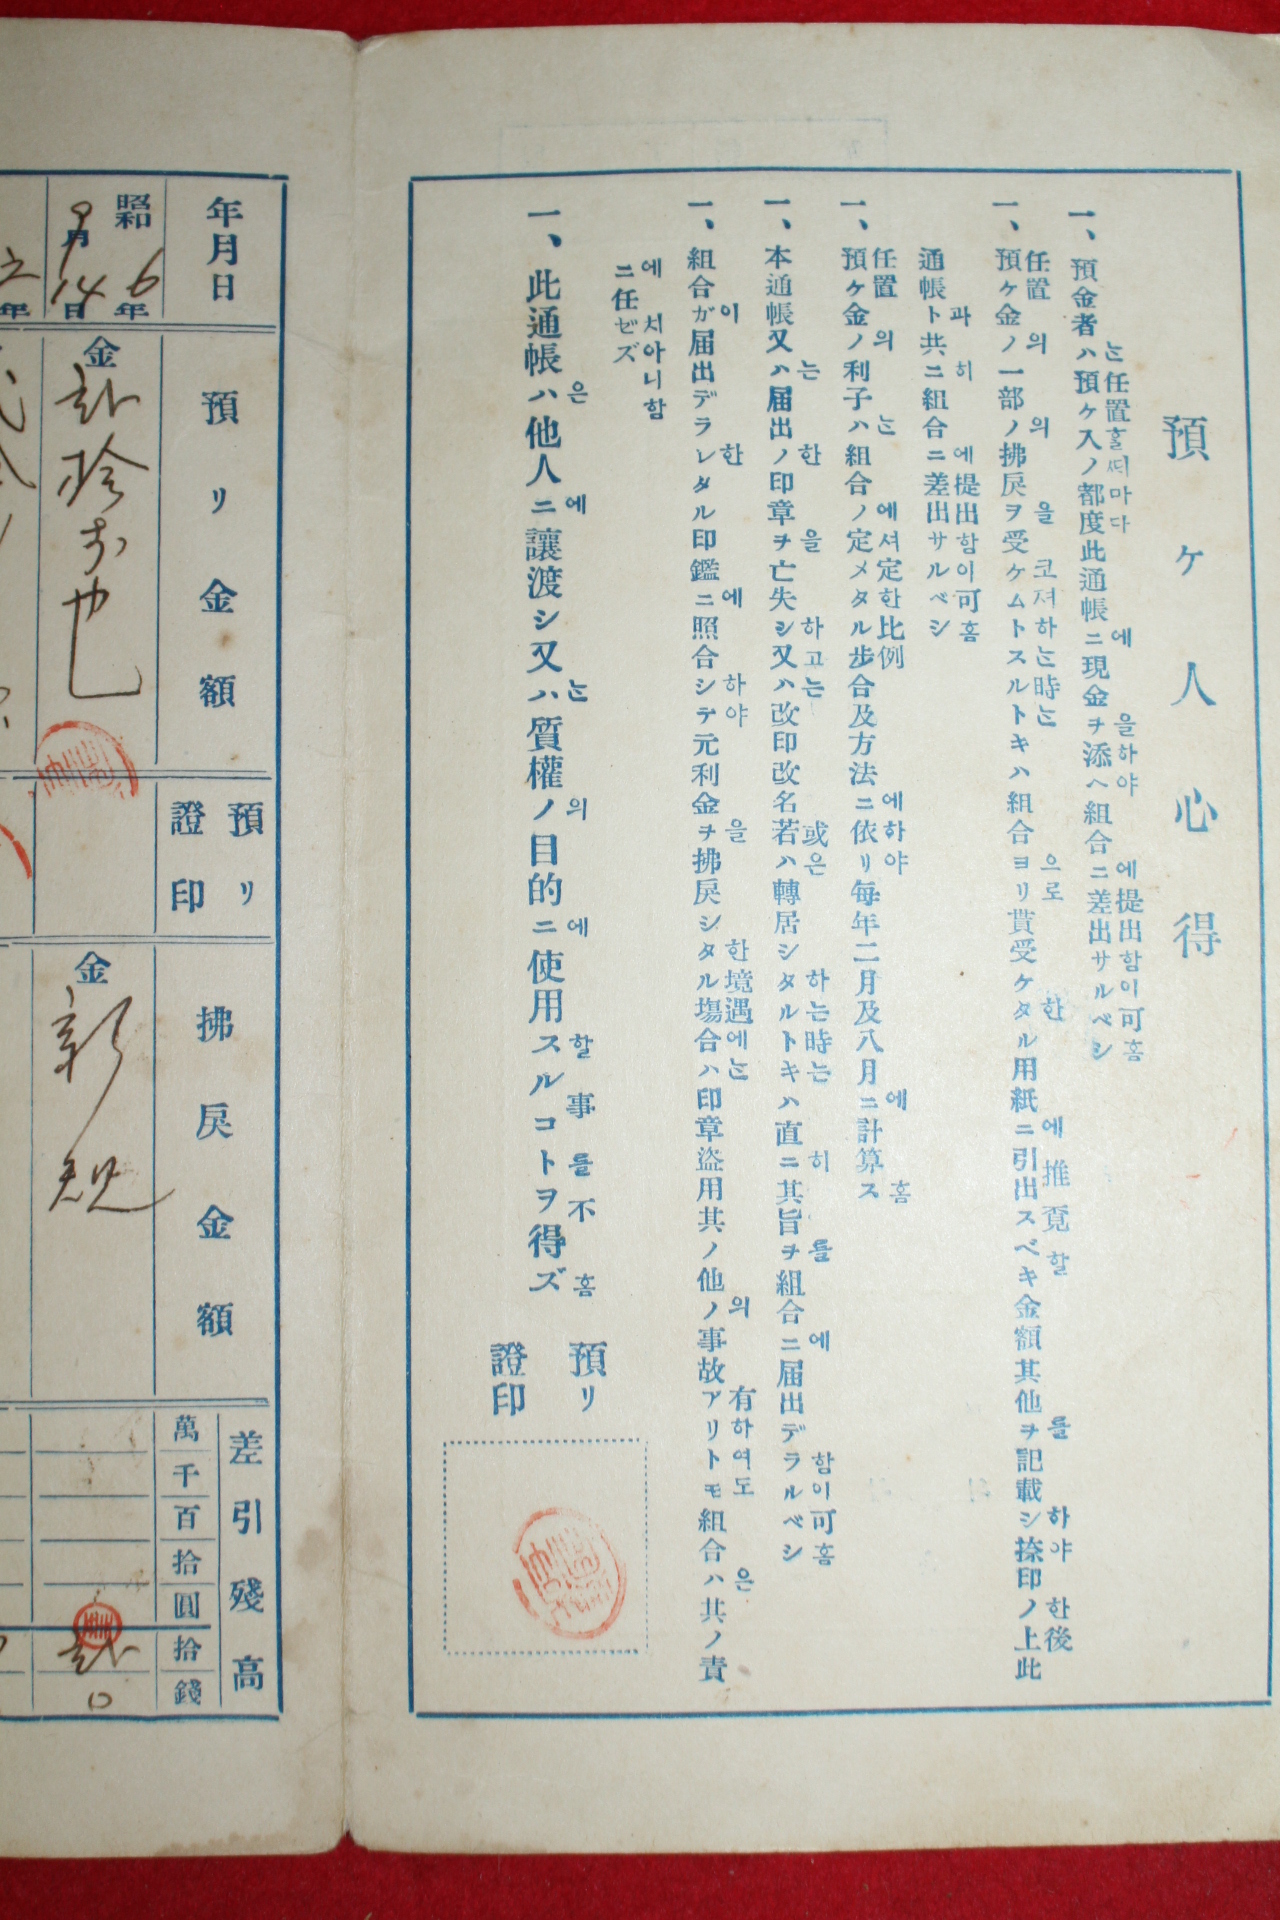 預ケ人心得
一、預金者ハ預ケ入ノ都度此通帳ニ現金ヲ添ヘ組合ニ差出サルベシ
는任置홀띄마다 에 을하야 에提出함이可홈
一、預ケ金ノ一部ノ拂戾ヲ受ケムトスルトキハ組合ヨリ貰受ケタル用紙ニ引出スベキ金額其他ヲ記載シ捺印ノ上此
任置의 의 을 코져하는時는 으로 한 에推覔할 를 하야 한後
通帳ト共ニ組合ニ差出サルベシ
과 히 에提出함이可홈
一、預ケ金ノ利子ハ組合ノ定メタル步合及方法ニ依リ每年二月及八月ニ計算ス
任置의 는 에셔定한比例 에하야 에 홈
一、本通帳又ハ届出ノ印章ヲ亡失シ又ハ改印改名若ハ轉居シタルトキハ直ニ其旨ヲ組合ニ届出デラルベシ
는 한 을 하고는 或은 하는時는 히 를 에 함이可홈
一、組合ガ届出デラレタル印鑑ニ照合シテ元利金ヲ拂戾シタル塲合ハ印章盜用其ノ他ノ事故アリトモ組合ハ其ノ責
이 한 에 하야 을 한境遇에는 의 有하여도 은
ニ任ゼズ
에 치아니함
一、此通帳ハ他人ニ讓渡シ又ハ質權ノ目的ニ使用スルコトヲ得ズ
은 에 는 의 에 할事를不홈
預リ
證印
年月日
預リ金額
預リ
證印
拂戾金額
差引殘高
萬千百拾圓拾錢
昭和6年
9月14日
金
也
金新規
年